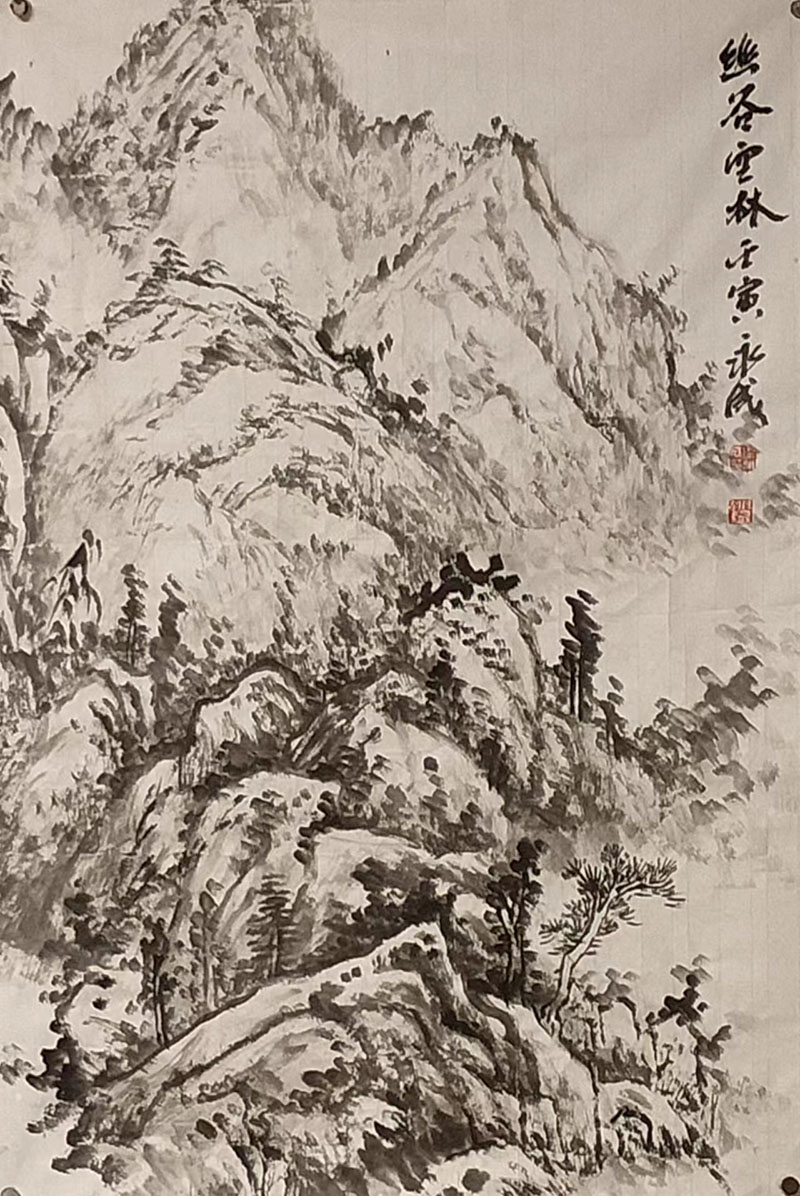 幽谷雲林壬寅永成